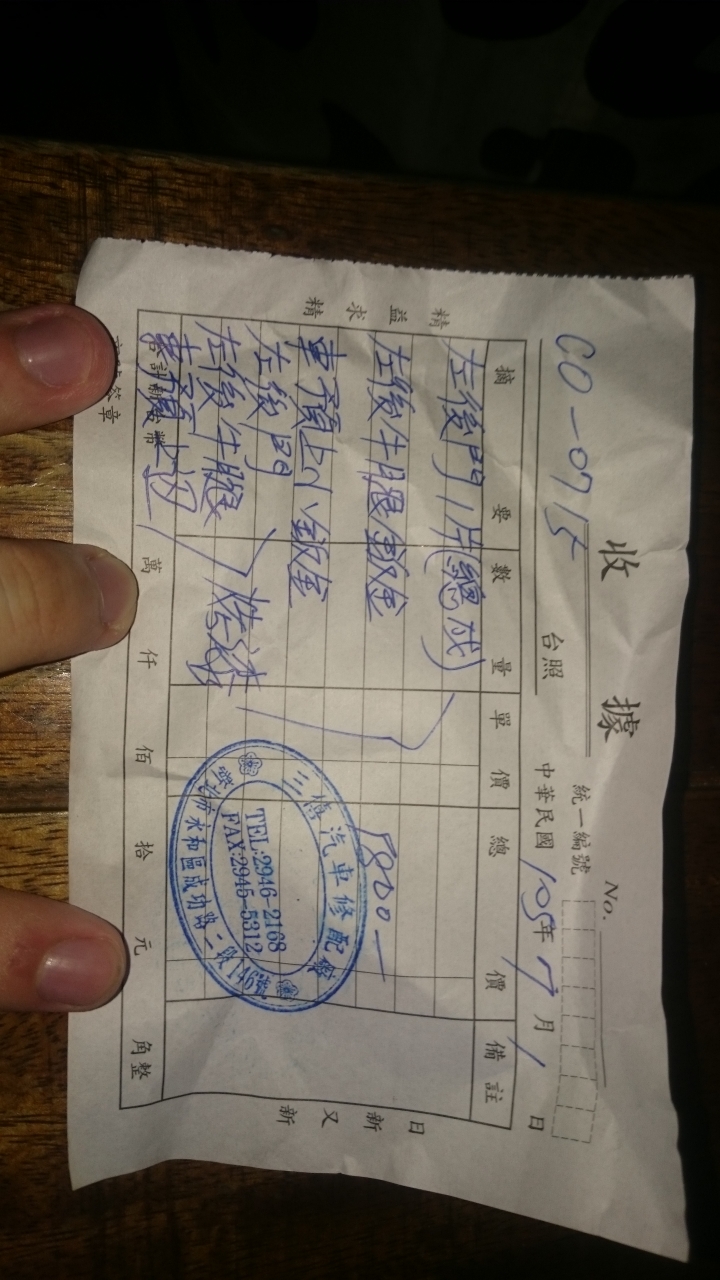 收據
No.
統一編號
CO-0715 台照
中華民國 105年 7月 1日
摘要 數量 單價 總價 備註
左後門1片(總成)
左後牛腿鈑金
車頂上鈑金
7800-
左後門
左後牛腿
車頂上
烤漆
合計新台幣 萬 仟 佰 拾 元 角整
簽章
精益求精
日新又新
三德汽車修配廠
TEL:2946-2168
FAX:2945-5312
永和區成功路二段146號